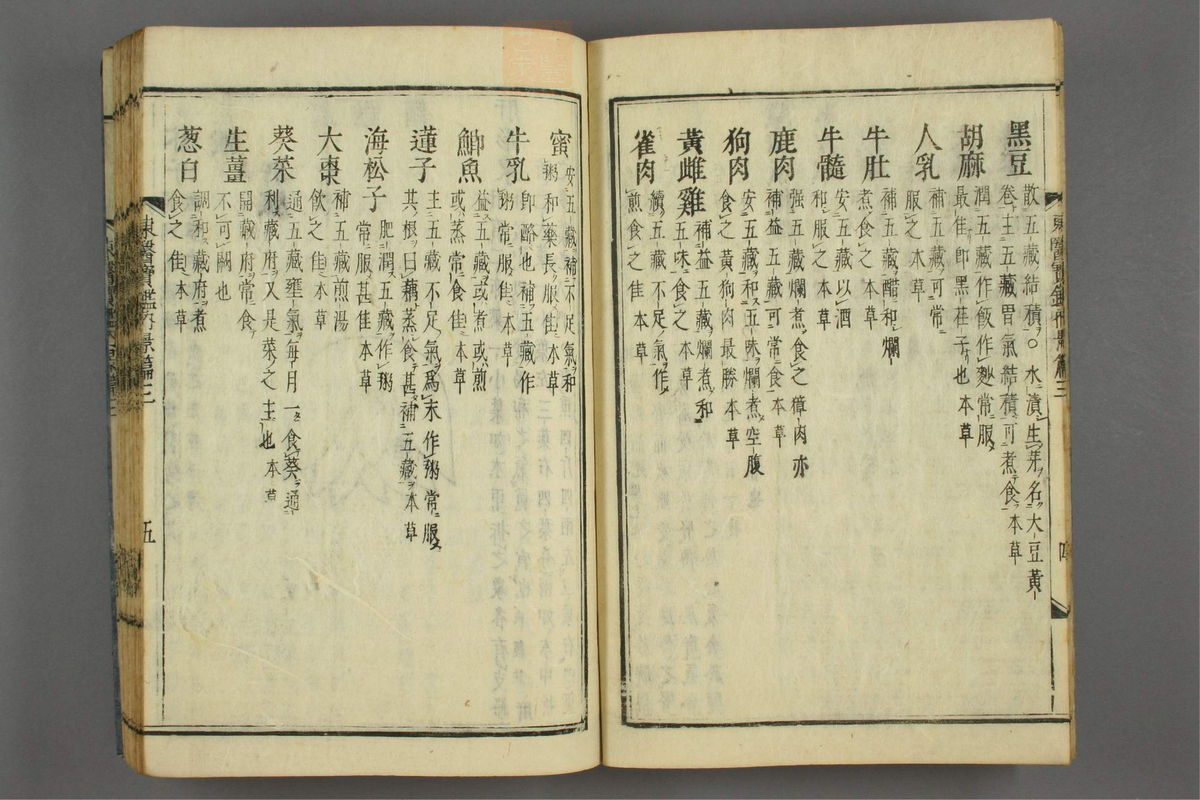 黑豆
散五藏結積○水漬生芽名大豆黃
卷主五藏胃氣結積可煮食本草
胡麻
潤五藏作飯作麨常服
最佳即黑荏子也本草
人乳
補五藏可常
服之本草
牛肚
補五藏醋和爛
煮食本草
牛髓
安五藏以酒
和服之本草
鹿肉
强五藏爛煮食之獐肉亦
補益五藏可常食本草
狗肉
安五藏和五味爛煮空腹
食之黃狗肉最勝本草
黃雌雞
補益五藏爛煮和
五味食之本草
雀肉
續五藏不足氣作
煎食之佳本草
蜜
安五藏補不足氣和
粥和藥長服佳本草
牛乳
即酪也補五藏作
粥常服佳本草
鯽魚
益五藏或煮或煎
或蒸常食佳本草
蓮子
主五藏不足氣爲末作粥常服
其根曰藕蒸食甚補五藏本草
海松子
肥潤五藏作粥
常服甚佳本草
大棗
補五藏煎湯
飲之佳本草
葵菜
通五藏壅氣每月一食葵通
利藏府又是菜之主也本草
生薑
開藏府常食
不可闕也
葱白
調和藏府煮
食之佳本草
東醫寶鑑內景篇三
五